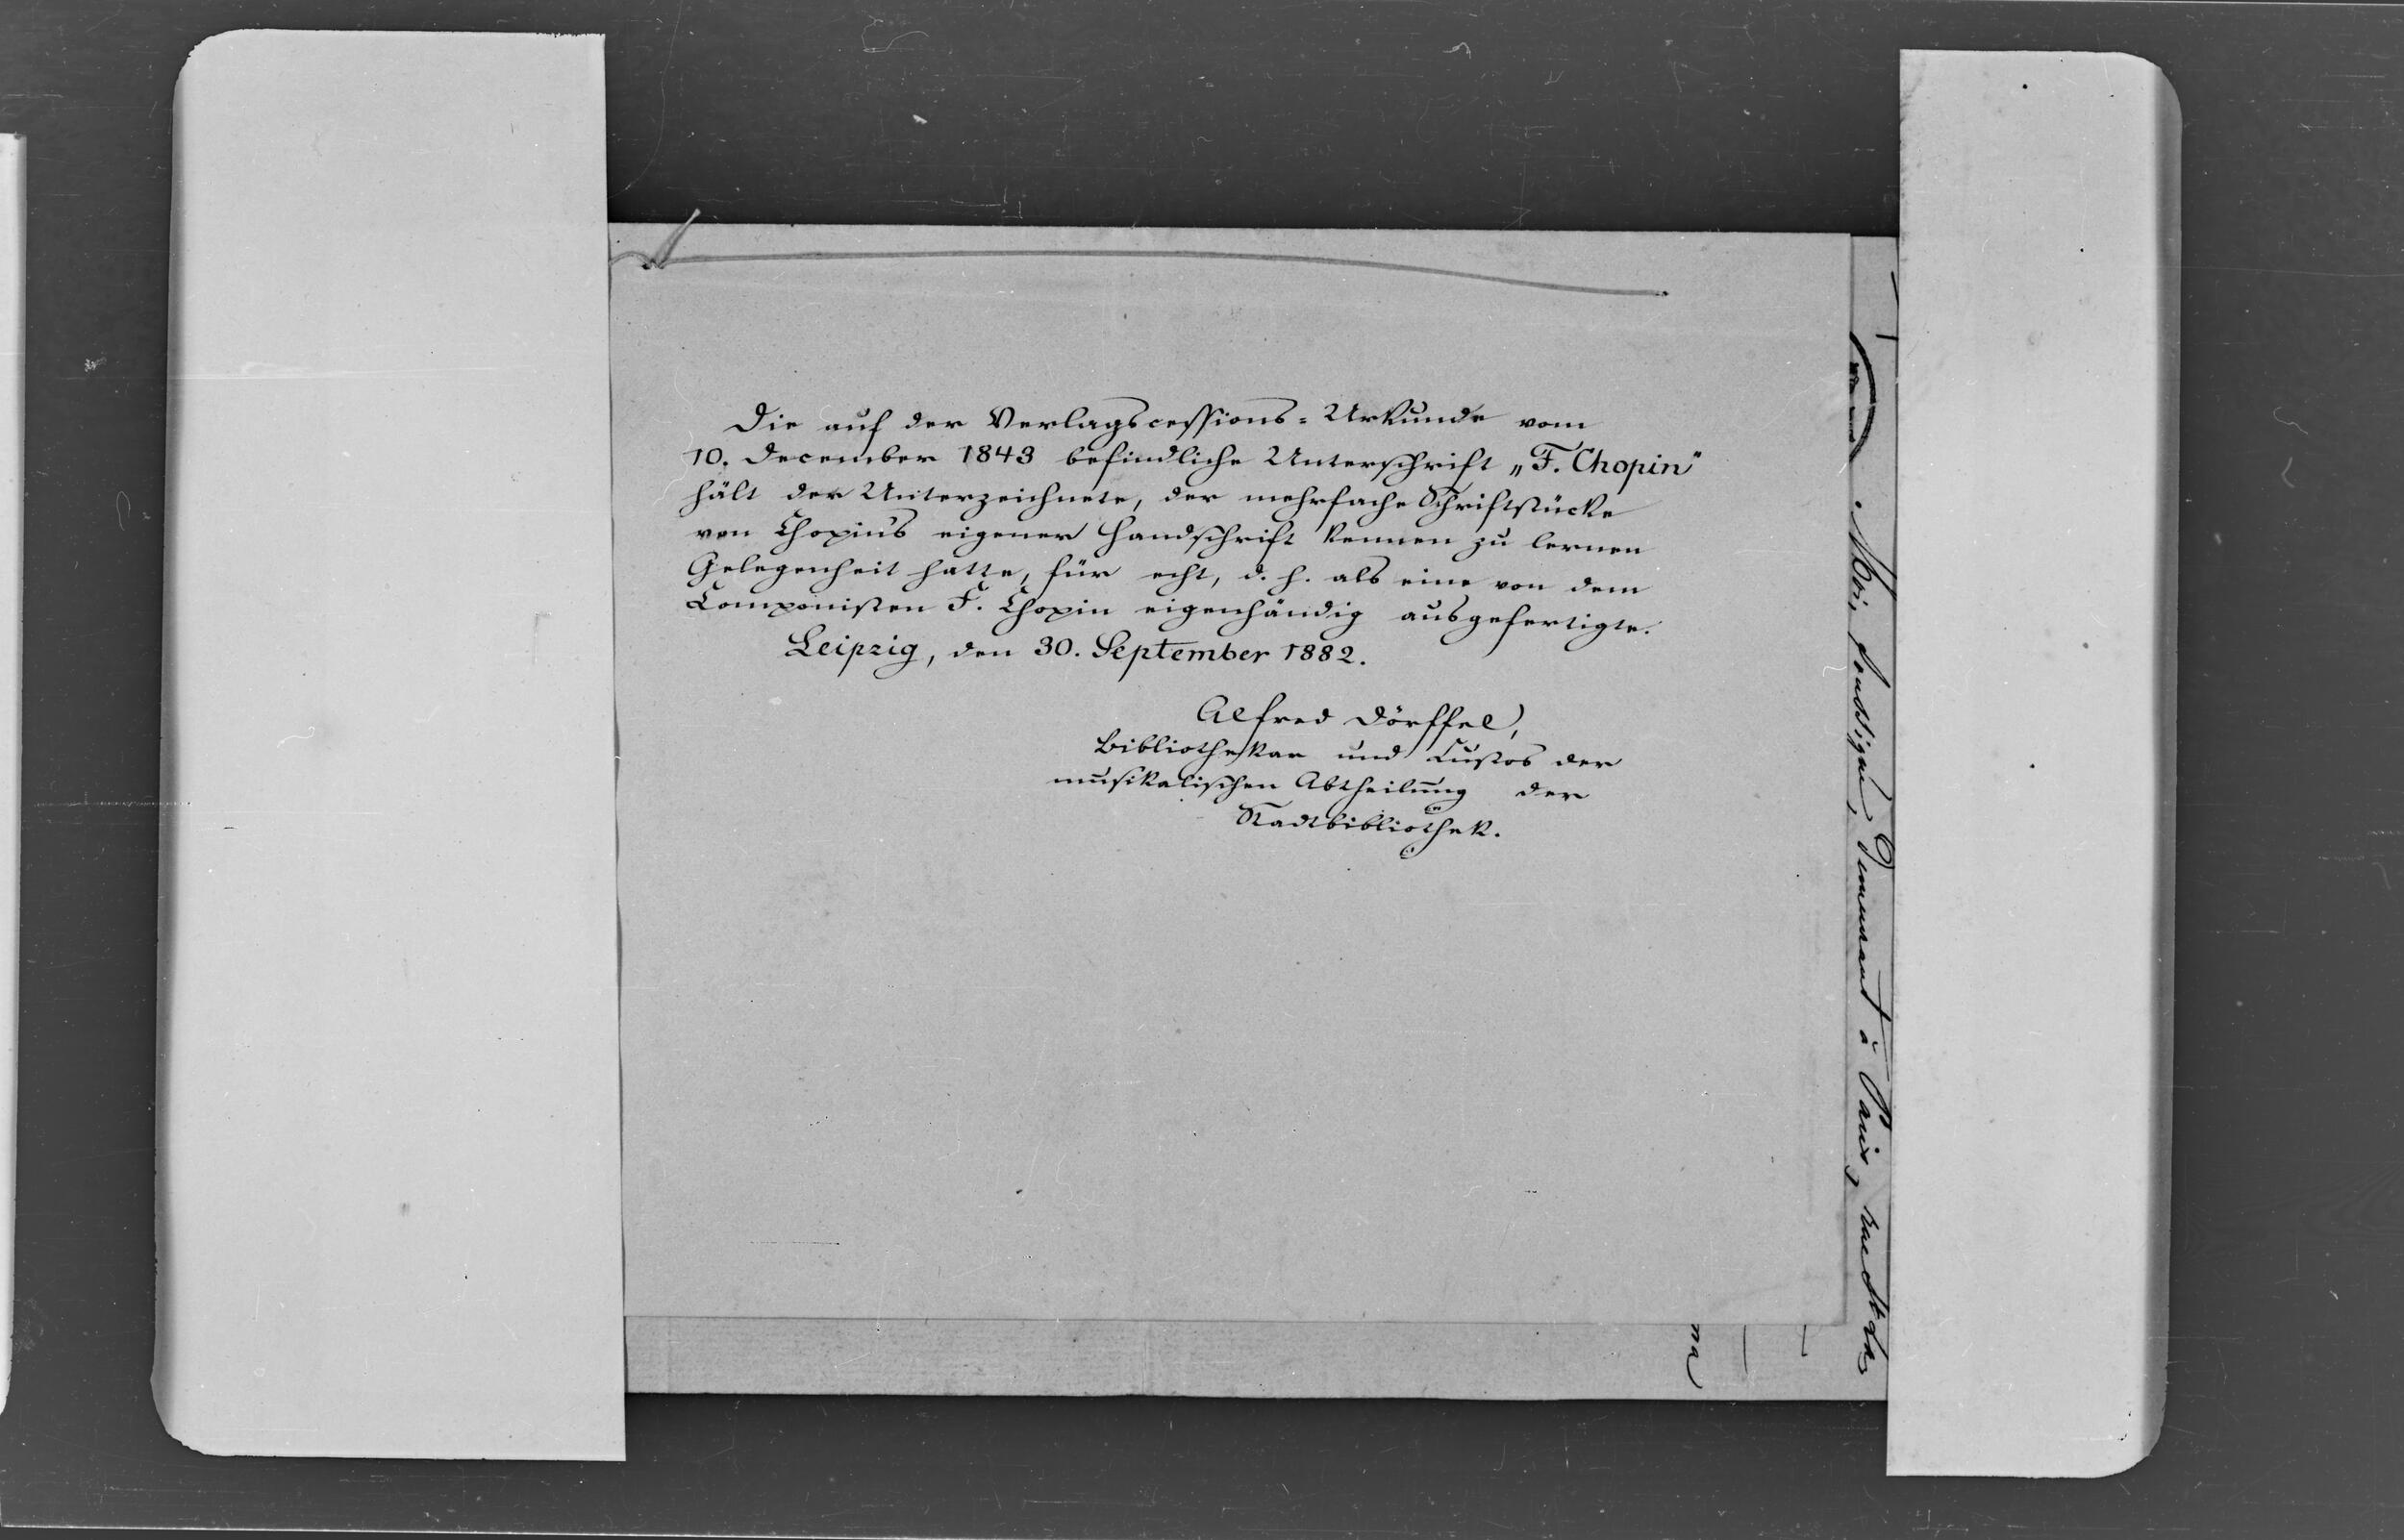 Die auf der Verlagscessions-Urkunde vom
10. December 1843 befindliche Unterschrift „F. Chopin"
hält der Unterzeichnete, der mehrfache Schriftstücke
von Chopin's eigener Handschrift kennen zu lernen
Gelegenheit hatte, für echt, d. h. als eine von dem
Componisten F. Chopin eigenhändig ausgefertigte.
Leipzig, den 30. September 1882.
Alfred Dörffel,
Bibliothekar und Custos der
musikalischen Abtheilung der
Stadtbibliothek.
Moi, soussigné, Demeurant à Paris, rue St
ma